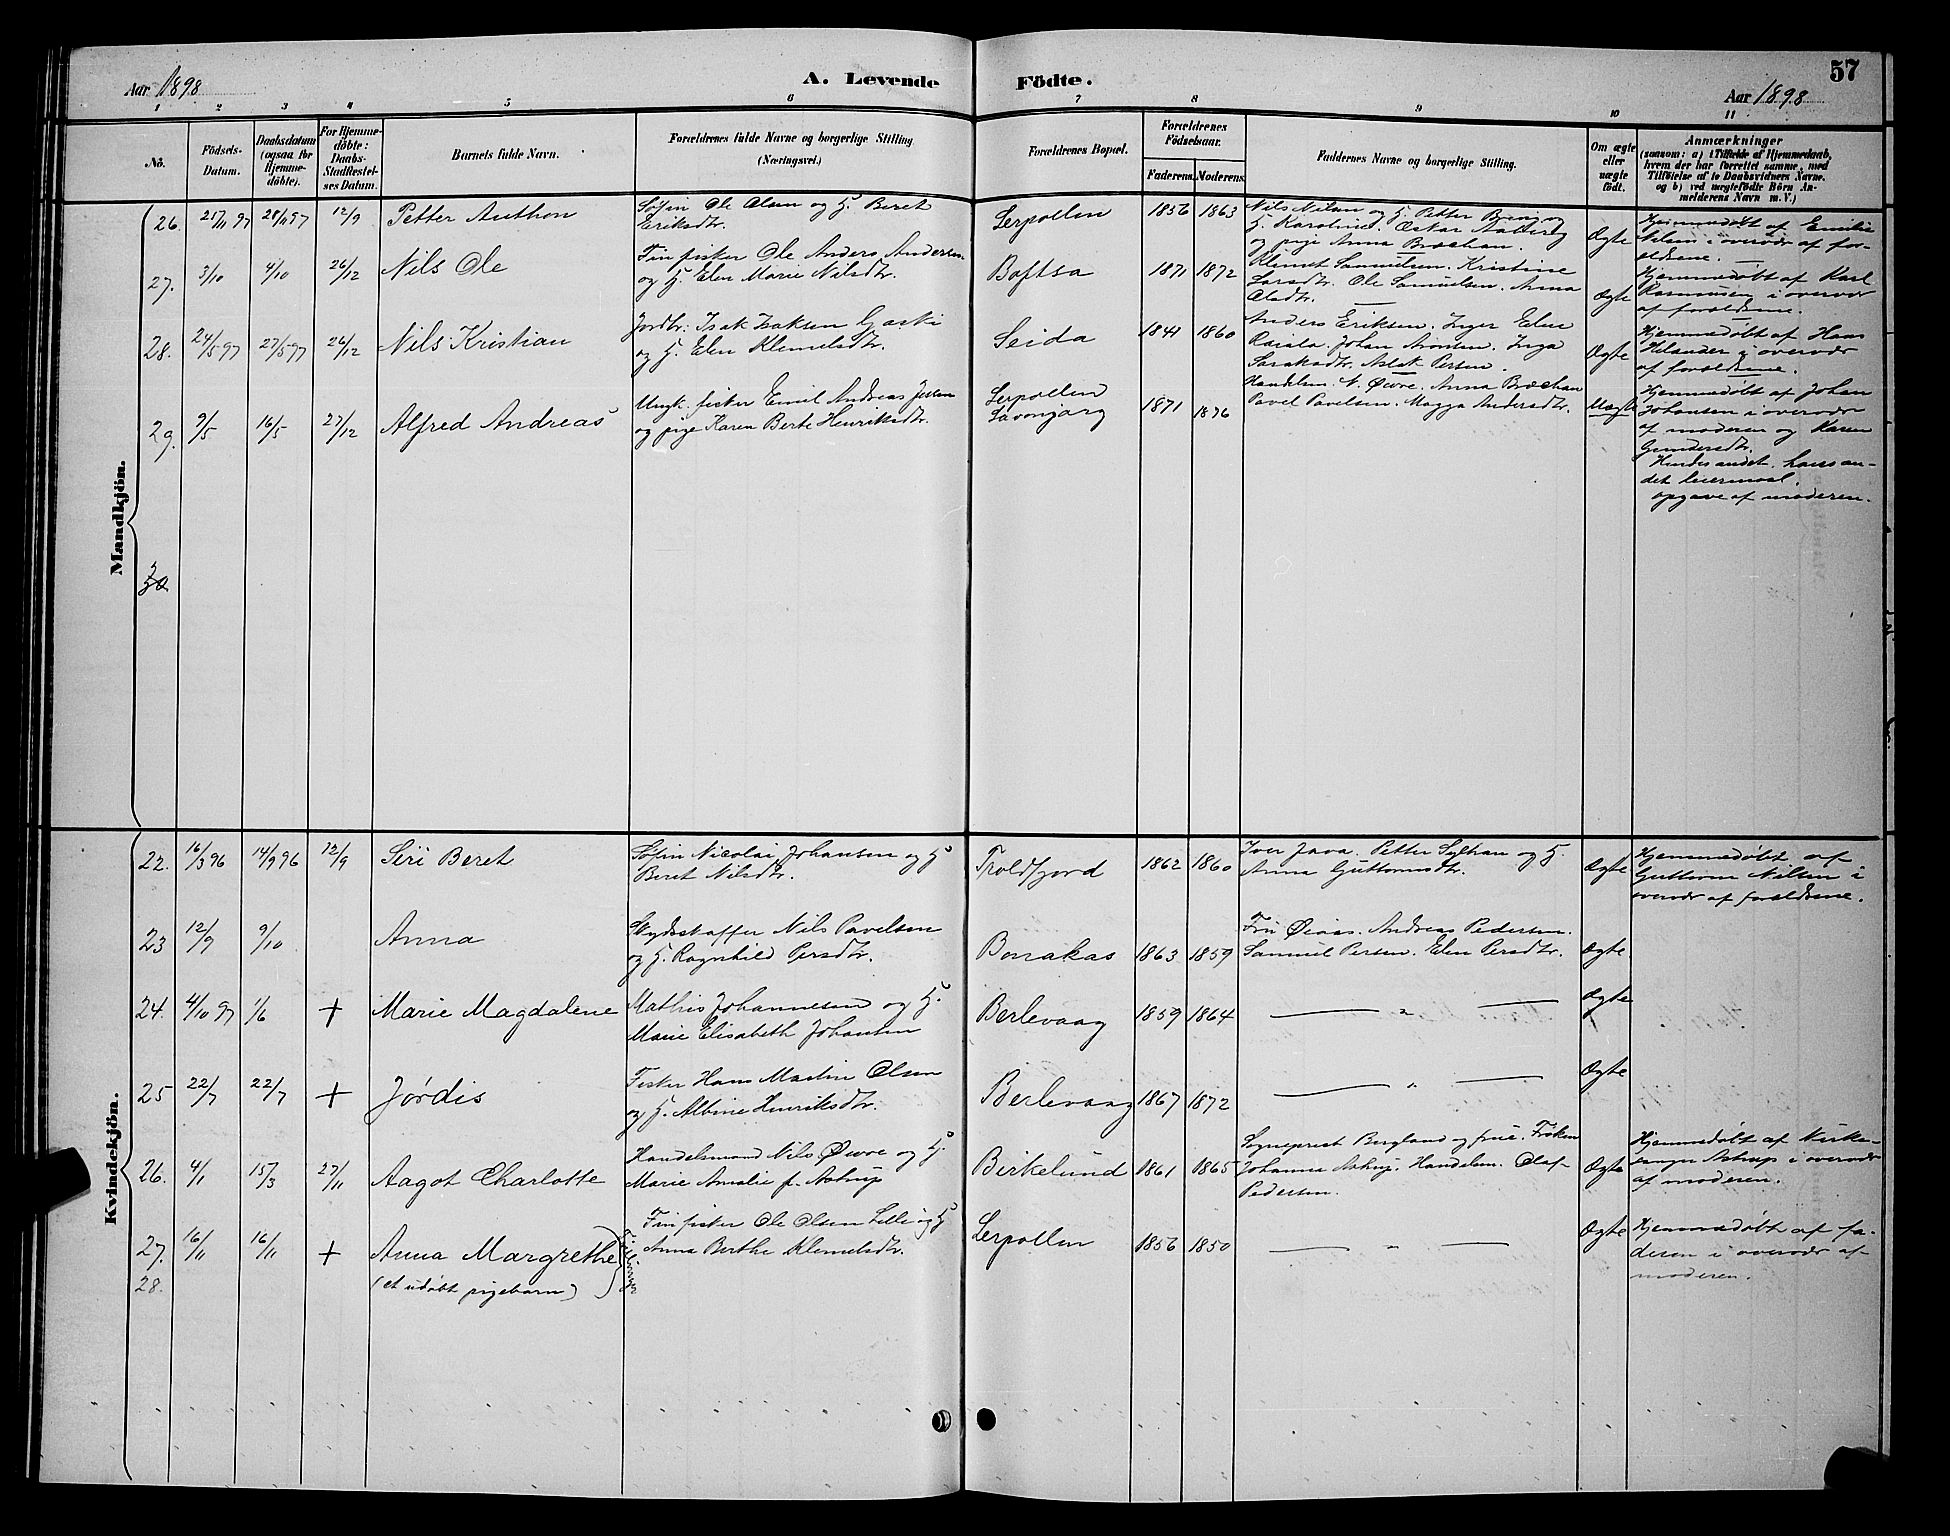 57
Aar 1898
A. Levende
Födte.
Aar 1898
1 2 3 4 5 6 7 8 9 10 11
No.
Födsels-
Datum.
Daabsdatum
(ogsaa for
Hjemme-
döbte).
For Hjemme-
döbte:
Daabs-
Stadfestel-
ses Datum.
Barnets fulde Navn.
Forældrenes fulde Navne og borgerlige Stilling
(Næringsvei.)
Forældrenes Bopæl.
Forældrenes
Födselsaar.
Faderens.
Moderens.
Faddernes Navne og borgerlige Stilling.
Om ægte
eller
uægte
födt.
Anmærkninger
(saasom: a) i Tilfælde af Hjemmedaab,
hvem der har forrettet samme, med
Tilföielse af to Daabsvidners Navne.
og b) ved uægtefödte Börn An-
melderens Navn m. V.)
Mandkjön.
26. 21/11 97 28/11 97 12/9 Petter Anthon
Söfin Ole Olsen og H. Beret
Eriksdtr.
Lerpollen 1856 1863
Nils Nilsen og H. Petter
H. Karoline. Oskar Aalberg
og pige Anna Brochan.
Ægte
Hjemmedøbt af Emilie
Nilsen i overvær af for-
ældrene.
27. 3/10 4/10 26/12 Nils Ole
Fin fisker Ole Anders Andersen
og H. Elen Marie Nilsdtr.
Boftsa 1871 1872
Klemet Samuelsen. Kristine
Larsdtr. Ole Samuelsen. Anna
Olsdtr.
Ægte
Hjemmedøbt af Karl
Rasmusen i overvær
af forældrene.
28. 24/5 97 27/5 97 26/12 Nils Kristian
Jordbr. Isak Isaksen
og H. Elen Klemetsdtr.
Seida 1841 1860
Anders Eriksen. Inger Elen
Johan Aronsen. Inga
Aslak Persen.
Ægte
Hjemmedøbt af Hans
Helander i overvær
af forældrene.
29. 9/5 16/5 27/12 Alfred Andreas
Ungk. fisker Emil Andreas Jessen
og pige Karen Berte Henriksdtr.
Lerpollen
Lavonjarg
1871 1876
Handelsm. N. Øwre. Anna Brochan
Pavel Pavelsen. Magga Andersdtr.
Uægte
Hjemmedøbt af Johan
Johansen i overvær
af moderen og Karen
Gundersdtr.
Hendes andet, hans an-
det leiermaal.
opgave af moderen.
30
Kvindekjön.
22. 16/3 96 14/9 96 12/9 Siri Beret
Söfin Nicolai Johansen og H
Beret Nilsdtr.
Troldfjord 1862 1860
Iver Java. Petter Sylhan og H.
Anna Guttormsdtr.
Ægte
Hjemmedøbt af
Guttorm Nilsen i
overvær af forældrene.
23 12/9 9/10 Anna
Skydsskaffer Nils Pavelsen
og H. Ragnhild Persdtr.
Bonakas 1863 1859
Fru Øvaas. Andreas Pedersen.
Samuel Persen. Elen Persdtr.
Ægte
24. 4/10 97 1/6 + Marie Magdalene
Mathis Johannesen og H.
Marie Elisabeth Johansen
Berlevaag 1859 1864 — " —
Ægte
25 22/7 22/7 + Jórdis
Fisker Hans Martin Olsen
og H. Albine Henriksdtr.
Berlevaag 1867 1872 — " —
Ægte
26. 4/1 15/3 27/11 Aagot Charlotte
Handelsmand Nils Øwre og H.
Marie Amalie f. Astrup
Birkelund 1861 1865
Sogneprest Bergland og frue. Frøken
Johanna Astrup. Handelsm. Olaf
Pedersen.
Ægte
Hjemmedøbt af Kirke-
sanger Astrup i overvær
af moderen.
27. 16/11 16/11 + Anna Margrethe
28. (et udøbt pigebarn)
Fin fisker Ole Olsen Lille og H
Anna Berthe Klemetsdtr.
Lerpollen 1856 1850 — " —
Ægte
Hjemmedøbt af fa-
deren i overvær af
moderen.